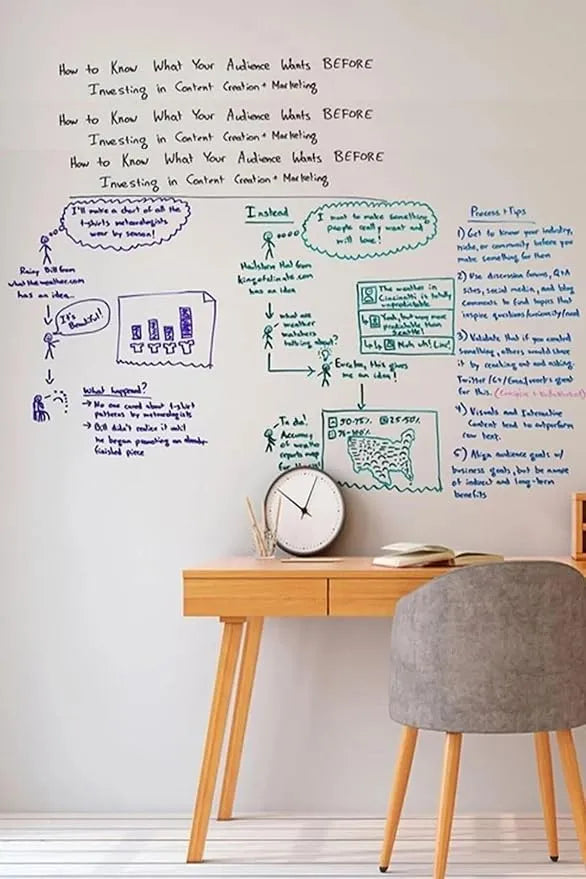 How to Know What Your Audience Wants BEFORE
Investing in Content Creation + Marketing
How to Know What Your Audience Wants BEFORE
Investing in Content Creation + Marketing
How to Know What Your Audience Wants BEFORE
Investing in Content Creation + Marketing
I'll make a chart of all the
t-shirts meteorologists
wear by season!
Rainy Bill from
whattheweather.com
has an idea...
It's
Beautiful!
What happened?
→ No one cared about t-shirt
patterns by meteorologists
→ Bill didn't realize it until
he began promoting an already
finished piece
Instead
I want to make something
people really want and
will love!
Hailstorm Hal from
kingofclimate.com
has an idea
what are
weather
watchers
talking about?
The weather in
Cincinatti is totally
unpredictable
Yeah, but way more
predictable than
Seattle!
Nuh uh! Liar!
Eureka, this gives
me an idea!
Ta da!
Accuracy
of weather
reports map
for the
50-75%
25-50%
75-100%
Process + Tips
1) Get to know your industry,
niche, or community before you
make something for them
2) Use discussion forums, Q+A
sites, social media, and blog
comments to find topics that
inspire questions/curiosity/need
3) Validate that if you created
something, others would share
it by reaching out and asking.
Twitter/G+/Email works great
for this.
4) Visuals and Interactive
Content tend to outperform
raw text.
5) Align audience goals w/
business goals, but be aware
of indirect and long-term
benefits